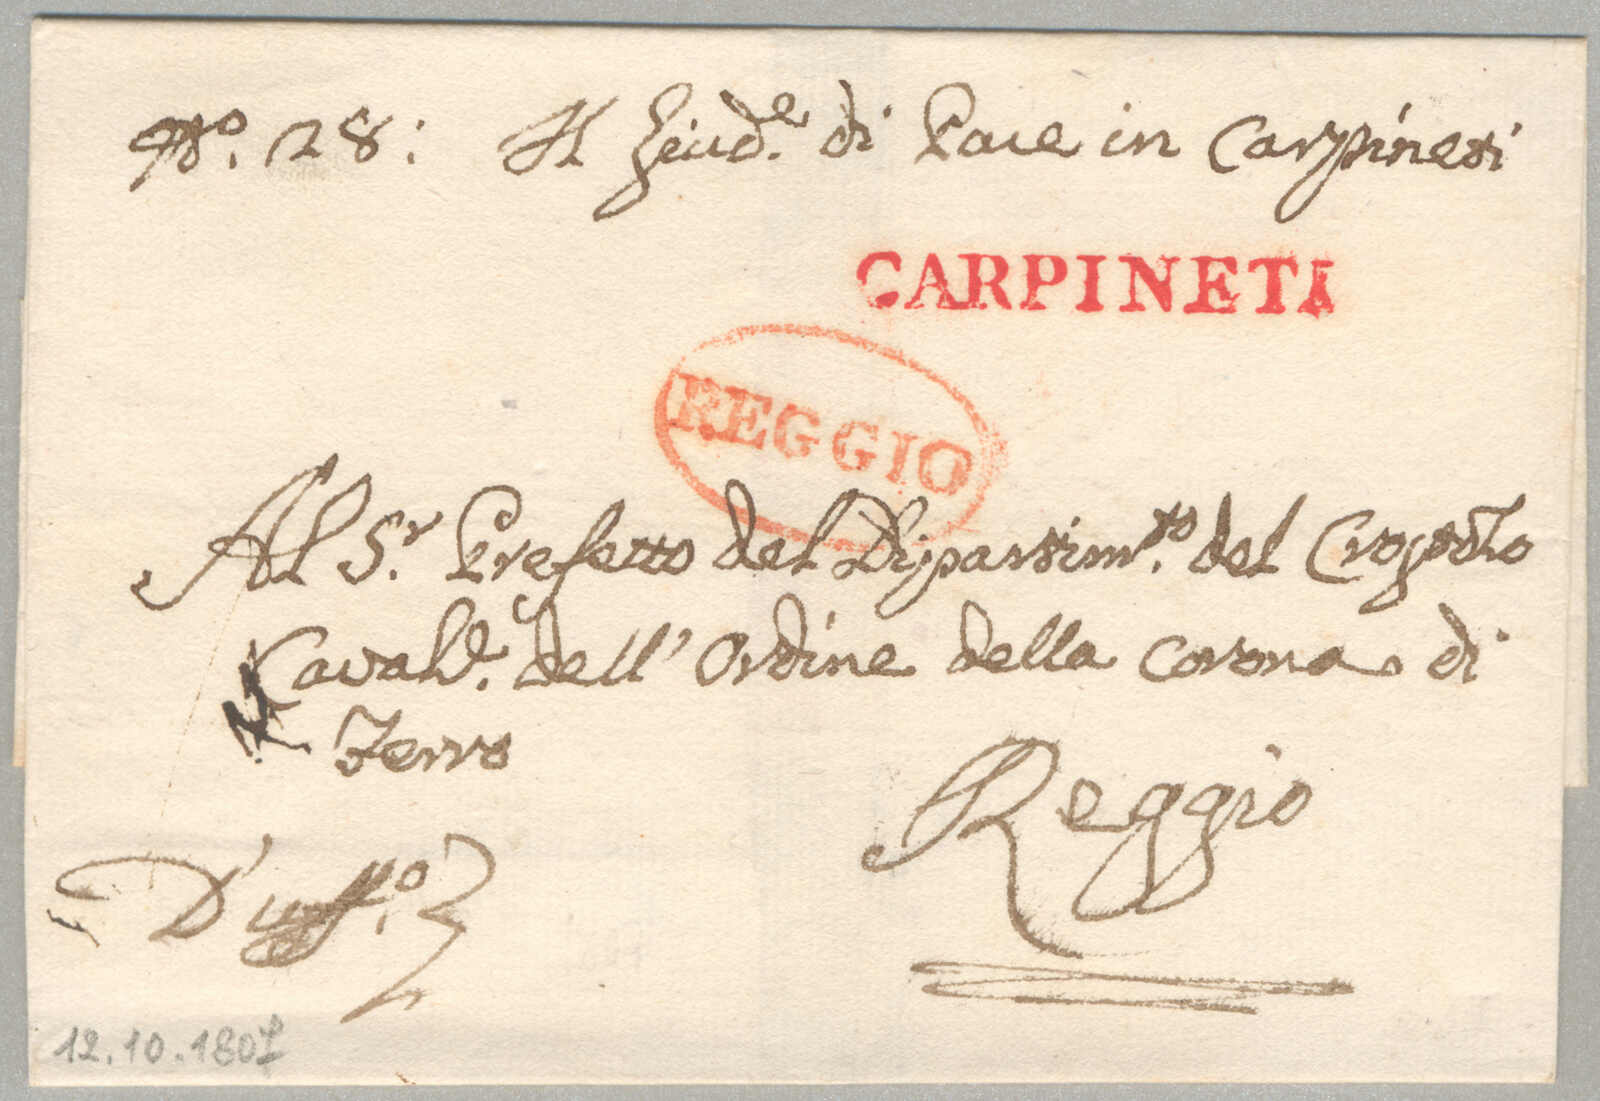 No. 128: Il Giud.e di Pace in Carpineti
CARPINETI
REGGIO
Al S.r Prefetto del Dipartim.to del Crostolo
Caval.e dell' Ordine della Corona di
Ferro
Reggio
D'uff.o
12.10.1807